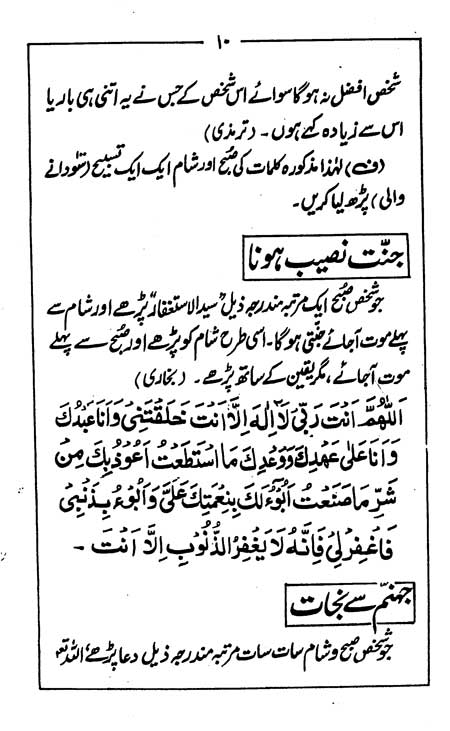 ۱۰
شخص افضل نہ ہوگا سوائے اس شخص کے جس نے یہ اتنی ہی بار یا
اس سے زیادہ کہے ہوں۔ (ترمذی)
(ف) لہٰذا مذکورہ کلمات کی صبح اور شام ایک ایک تسبیح (سَو دانے
والی) پڑھ لیا کریں۔
جنّت نصیب ہونا
جو شخص صبح ایک مرتبہ مندرجہ ذیل "سید الاستغفار" پڑھے اور شام سے
پہلے موت آجائے جنتی ہوگا۔ اسی طرح شام کو پڑھے اور صبح سے پہلے
موت آجائے، مگر یقین کے ساتھ پڑھے۔ (بخاری)
اَللّٰهُمَّ اَنْتَ رَبِّىْ لَا اِلٰهَ اِلَّا اَنْتَ خَلَقْتَنِىْ وَاَنَا عَبْدُكَ
وَاَنَا عَلٰى عَهْدِكَ وَوَعْدِكَ مَا اسْتَطَعْتُ اَعُوْذُ بِكَ مِنْ
شَرِّ مَا صَنَعْتُ اَبُوْءُ لَكَ بِنِعْمَتِكَ عَلَىَّ وَاَبُوْءُ بِذَنْۢبِىْ
فَاغْفِرْلِىْ فَاِنَّهٗ لَا يَغْفِرُ الذُّنُوْبَ اِلَّا اَنْتَ ۔
جہنّم سے نجات
جو شخص صبح و شام سات سات مرتبہ مندرجہ ذیل دعا پڑھے اللہ تعہ